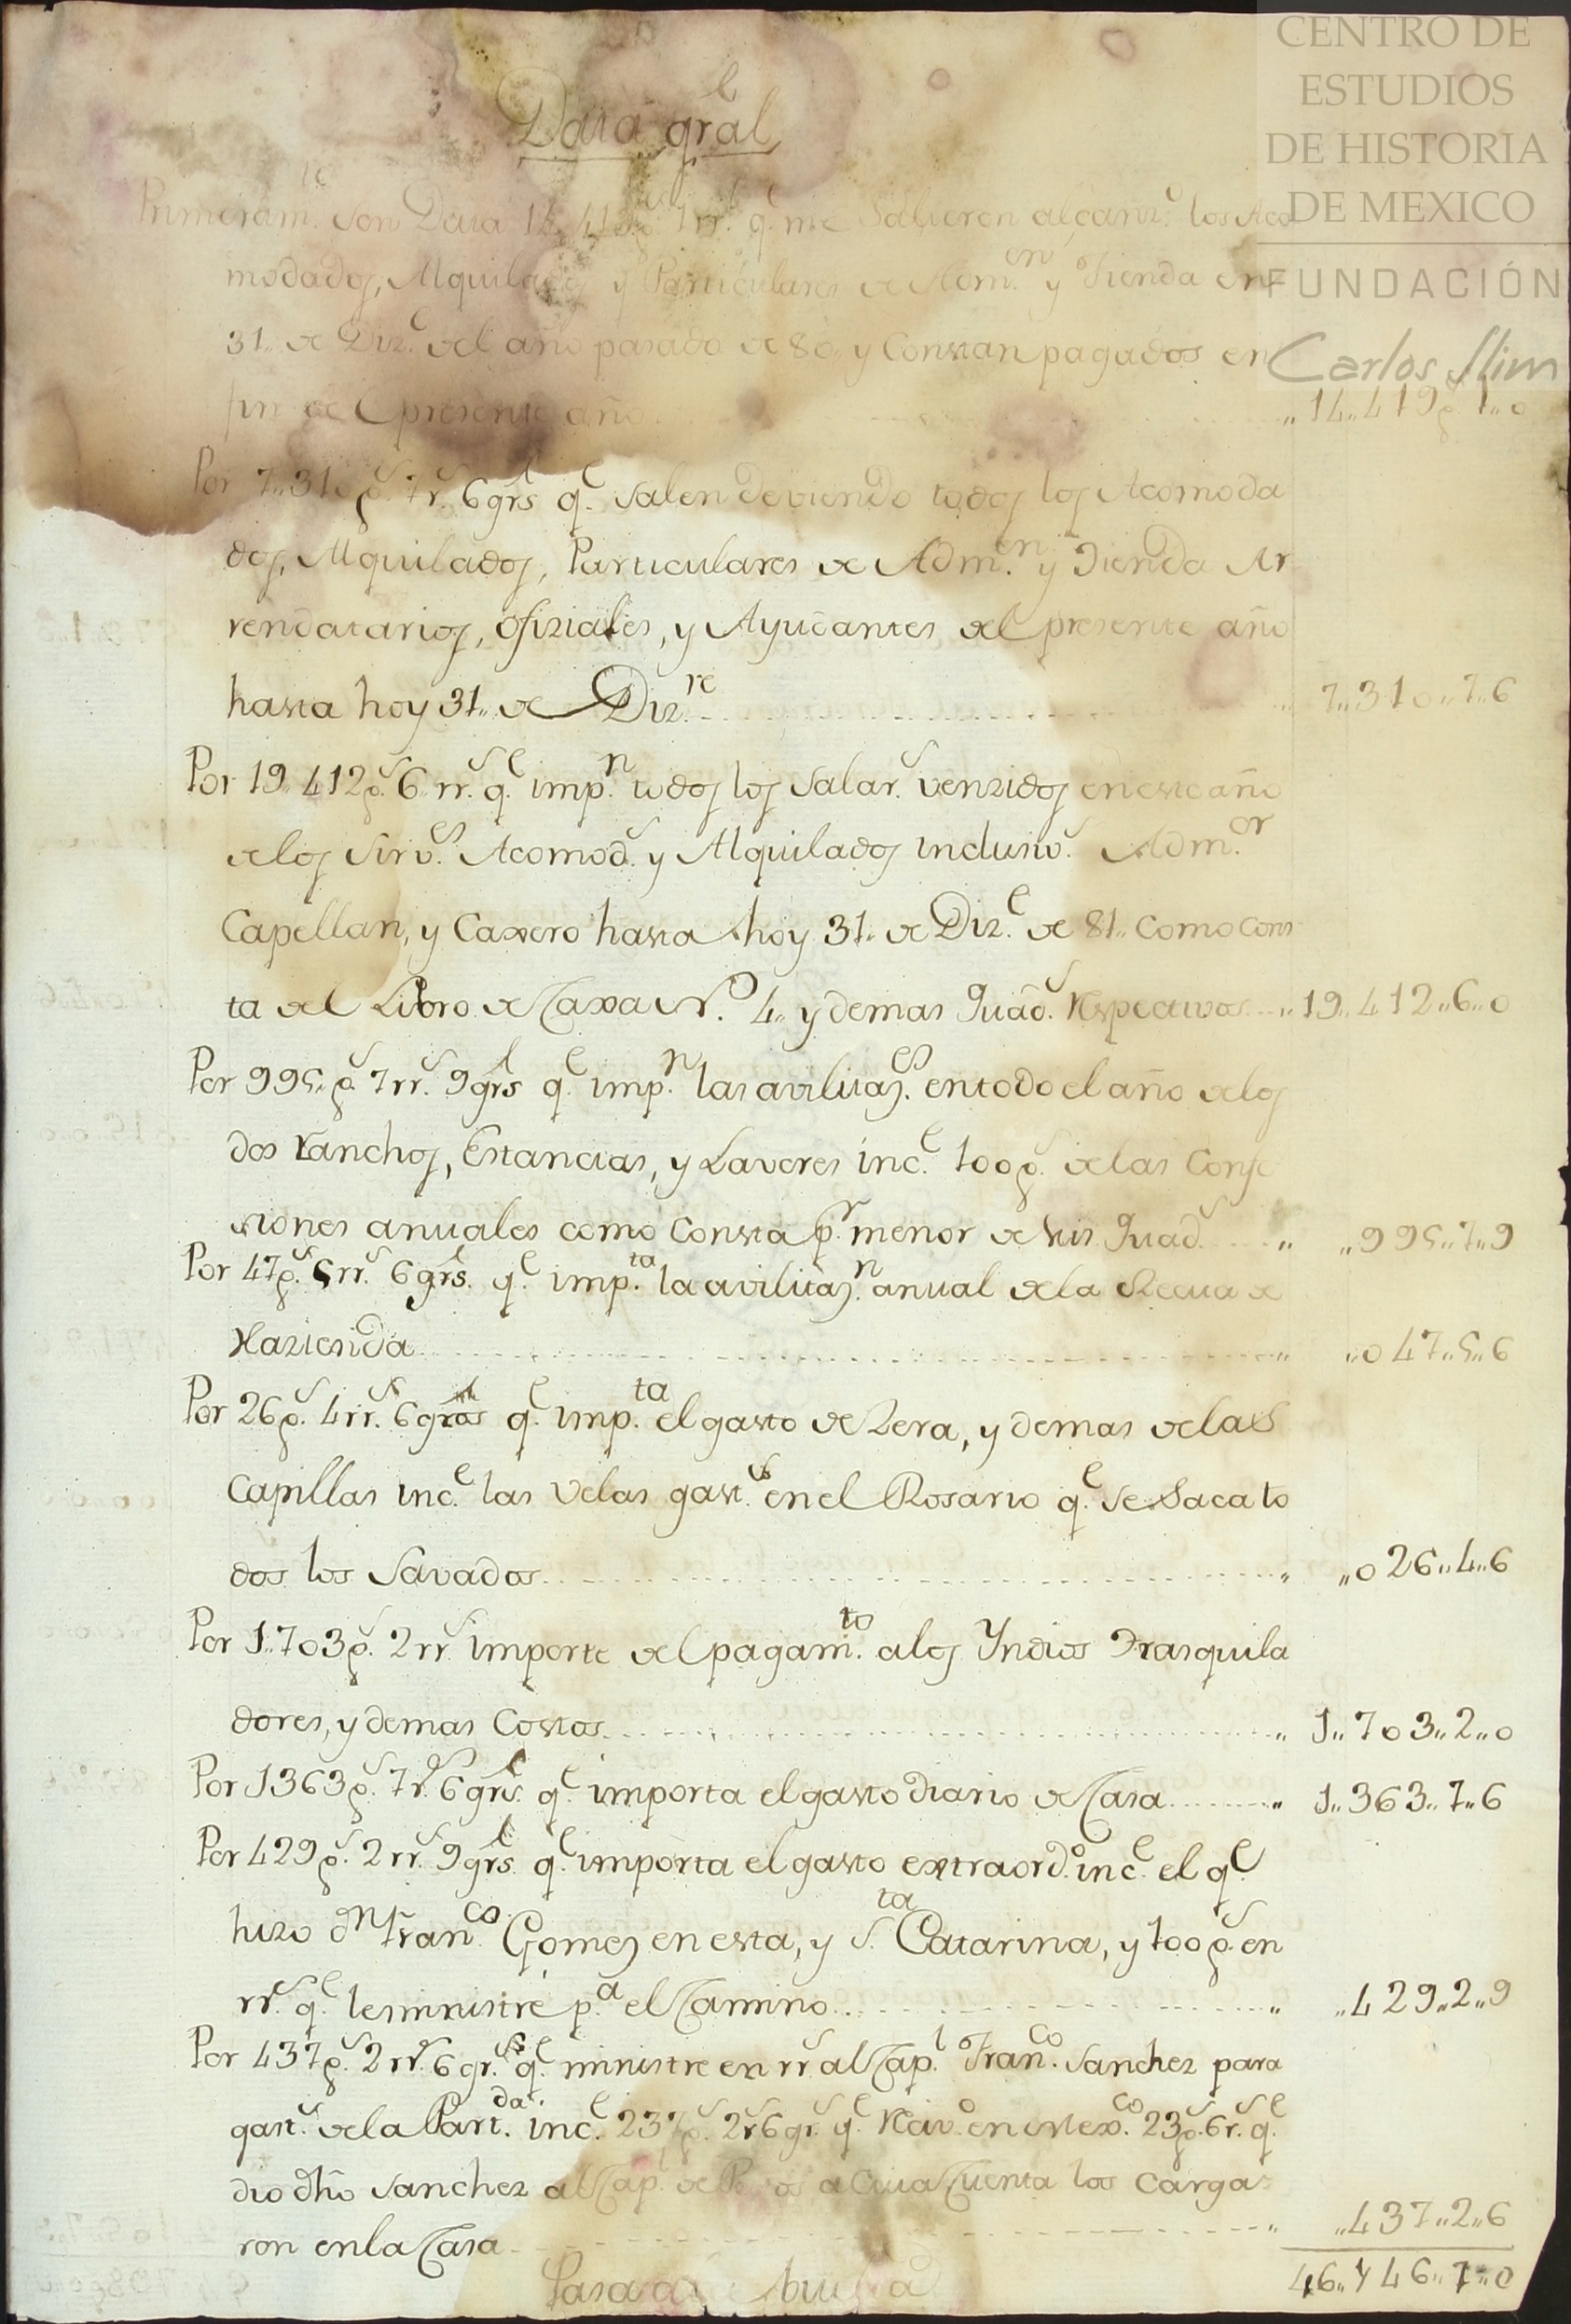 CENTRO DE
ESTUDIOS
DE HISTORIA
DE MEXICO
FUNDACIÓN
Carlos Slim
Data gral
Primeram.te son Data 14,,419p.s 1 rr. q.e me Salieron alcanz.s los Aco
modados, Alquilados y Particulares de Adm.on y Tienda en
31,, de Diz.e del año pasado de 80,, y Constan pagados en
fin de el presente año ,,14,,419p.s 1,,0
Por 7,,310p.s 7r.s 6grs q.e salen deviendo todos los Acomoda
dos, Alquilados, Particulares de Adm.on y Tienda Ar
rendatarios, ofiziales, y Ayudantes del presente año
hasta hoy 31,, de Diz.re ,, 7,,310,,7,,6
Por 19,,412p.s 6,,rr.s q.e imp.n todos los Salar.s venzidos en este año
de los Sirv.es Acomod.s y Alquilados inclusiv.s Adm.or
Capellan, y Caxero hasta hoy 31,, de Diz.e de 81,, Como Cons
ta del Libro de Caxa N.o 4,, y demas Quad.s Respectivos ,,19,,412,,6,,0
Por 995,,p.s 7rr.s 9grs q.e imp.n las avilitaz.es en todo el año de los
dos Ranchos, Estancias, y Laveres inc.e 100p.s de las Confe
siones anuales como Consta p.r menor de sus Quad.s ,, ,,995,,7,,9
Por 47p.s 5rr.s 6grs. q.e imp.ta la avilitaz.n anual de la Recua de
Hazienda ,, ,,047,,5,,6
Por 26p.s 4rr.s 6gras q.e imp.ta el gasto de Zera, y demas de las
Capillas inc.e las Velas gast.s en el Rosario q.e se Saca to
dos los Savados ,, ,,026,,4,,6
Por 1,,703p.s 2rr.s importe del pagam.to a los Yndios Trasquila
dores, y demas Costos ,, 1,,703,,2,,0
Por 1363p.s 7r.s 6grs. q.e importa el gasto diario de Casa ,, 1,,363,,7,,6
Por 429p.s 2rr.s 9grs. q.e importa el gasto extraord.o inc.e el q.e
hizo d.n Fran.co Gomez en esta, y S.ta Catarina, y 100p.s en
rr.s q.e le sministré p.a el Camino ,, ,,429,,2,,9
Por 437p.s 2rr.s 6gr.s q.e ministre en rr.s al Cap.l Fran.co Sanchez para
gast.s de la Part.da inc.e 237p.s 2r.s 6gr.s q.e Reciv.o en Mex.co 23p.s 6r.s q.e
dio dho Sanchez al Cap.l de a Cuia Cuenta los Carga
ron en la Casa ,, ,,437,,2,,6
Pasa a la Buelta 46,,146,,7,,0